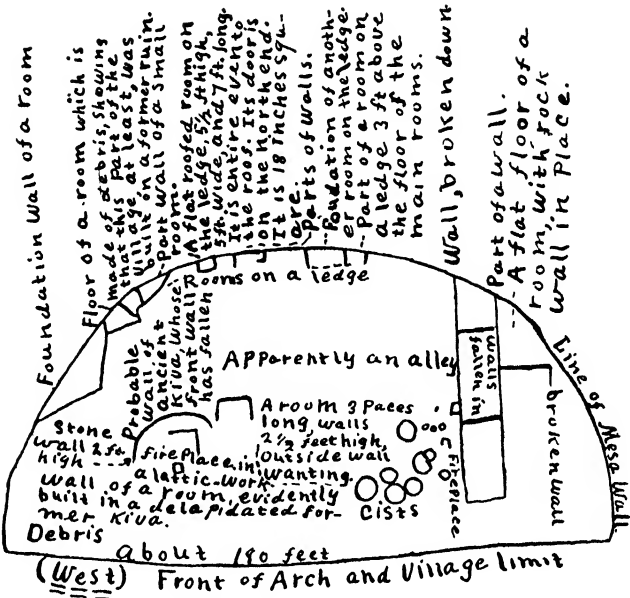 Foundation Wall of a room
Floor of a room which is
made of debris, showing
that this part of the
village, at least, was
built in a former ruin.
Part wall of a small
room.
A flat roofed room on
the ledge, 5½ ft high,
5ft. wide, and 7 ft. long.
It is entire even to
the roof. Its door is
on the north end.
It is 18 inches squ-
are.
Parts of walls.
Foundation of anoth-
er room on the ledge.
Part of a room on
a ledge 3 ft above
the floor of the
main rooms.
Wall, broken down
Part of a wall.
A flat floor of a
room, with rock
wall in Place.
Rooms on a ledge
Probable
wall of
ancient
Kiva, whose
front wall
has fallen
Apparently an alley
walls
fallen in
broken wall
Line of Mesa Wall.
A room 3 Paces
long, walls
2½ feet high,
outside wall
wanting.
Stone
wall 2 ft.
high
fireplace, in
a lattic-work
wall of a room, evidently
built in a delapidated for-
mer Kiva.
Cists
Fireplace
Debris
about 190 feet
(West) Front of Arch and Village limit